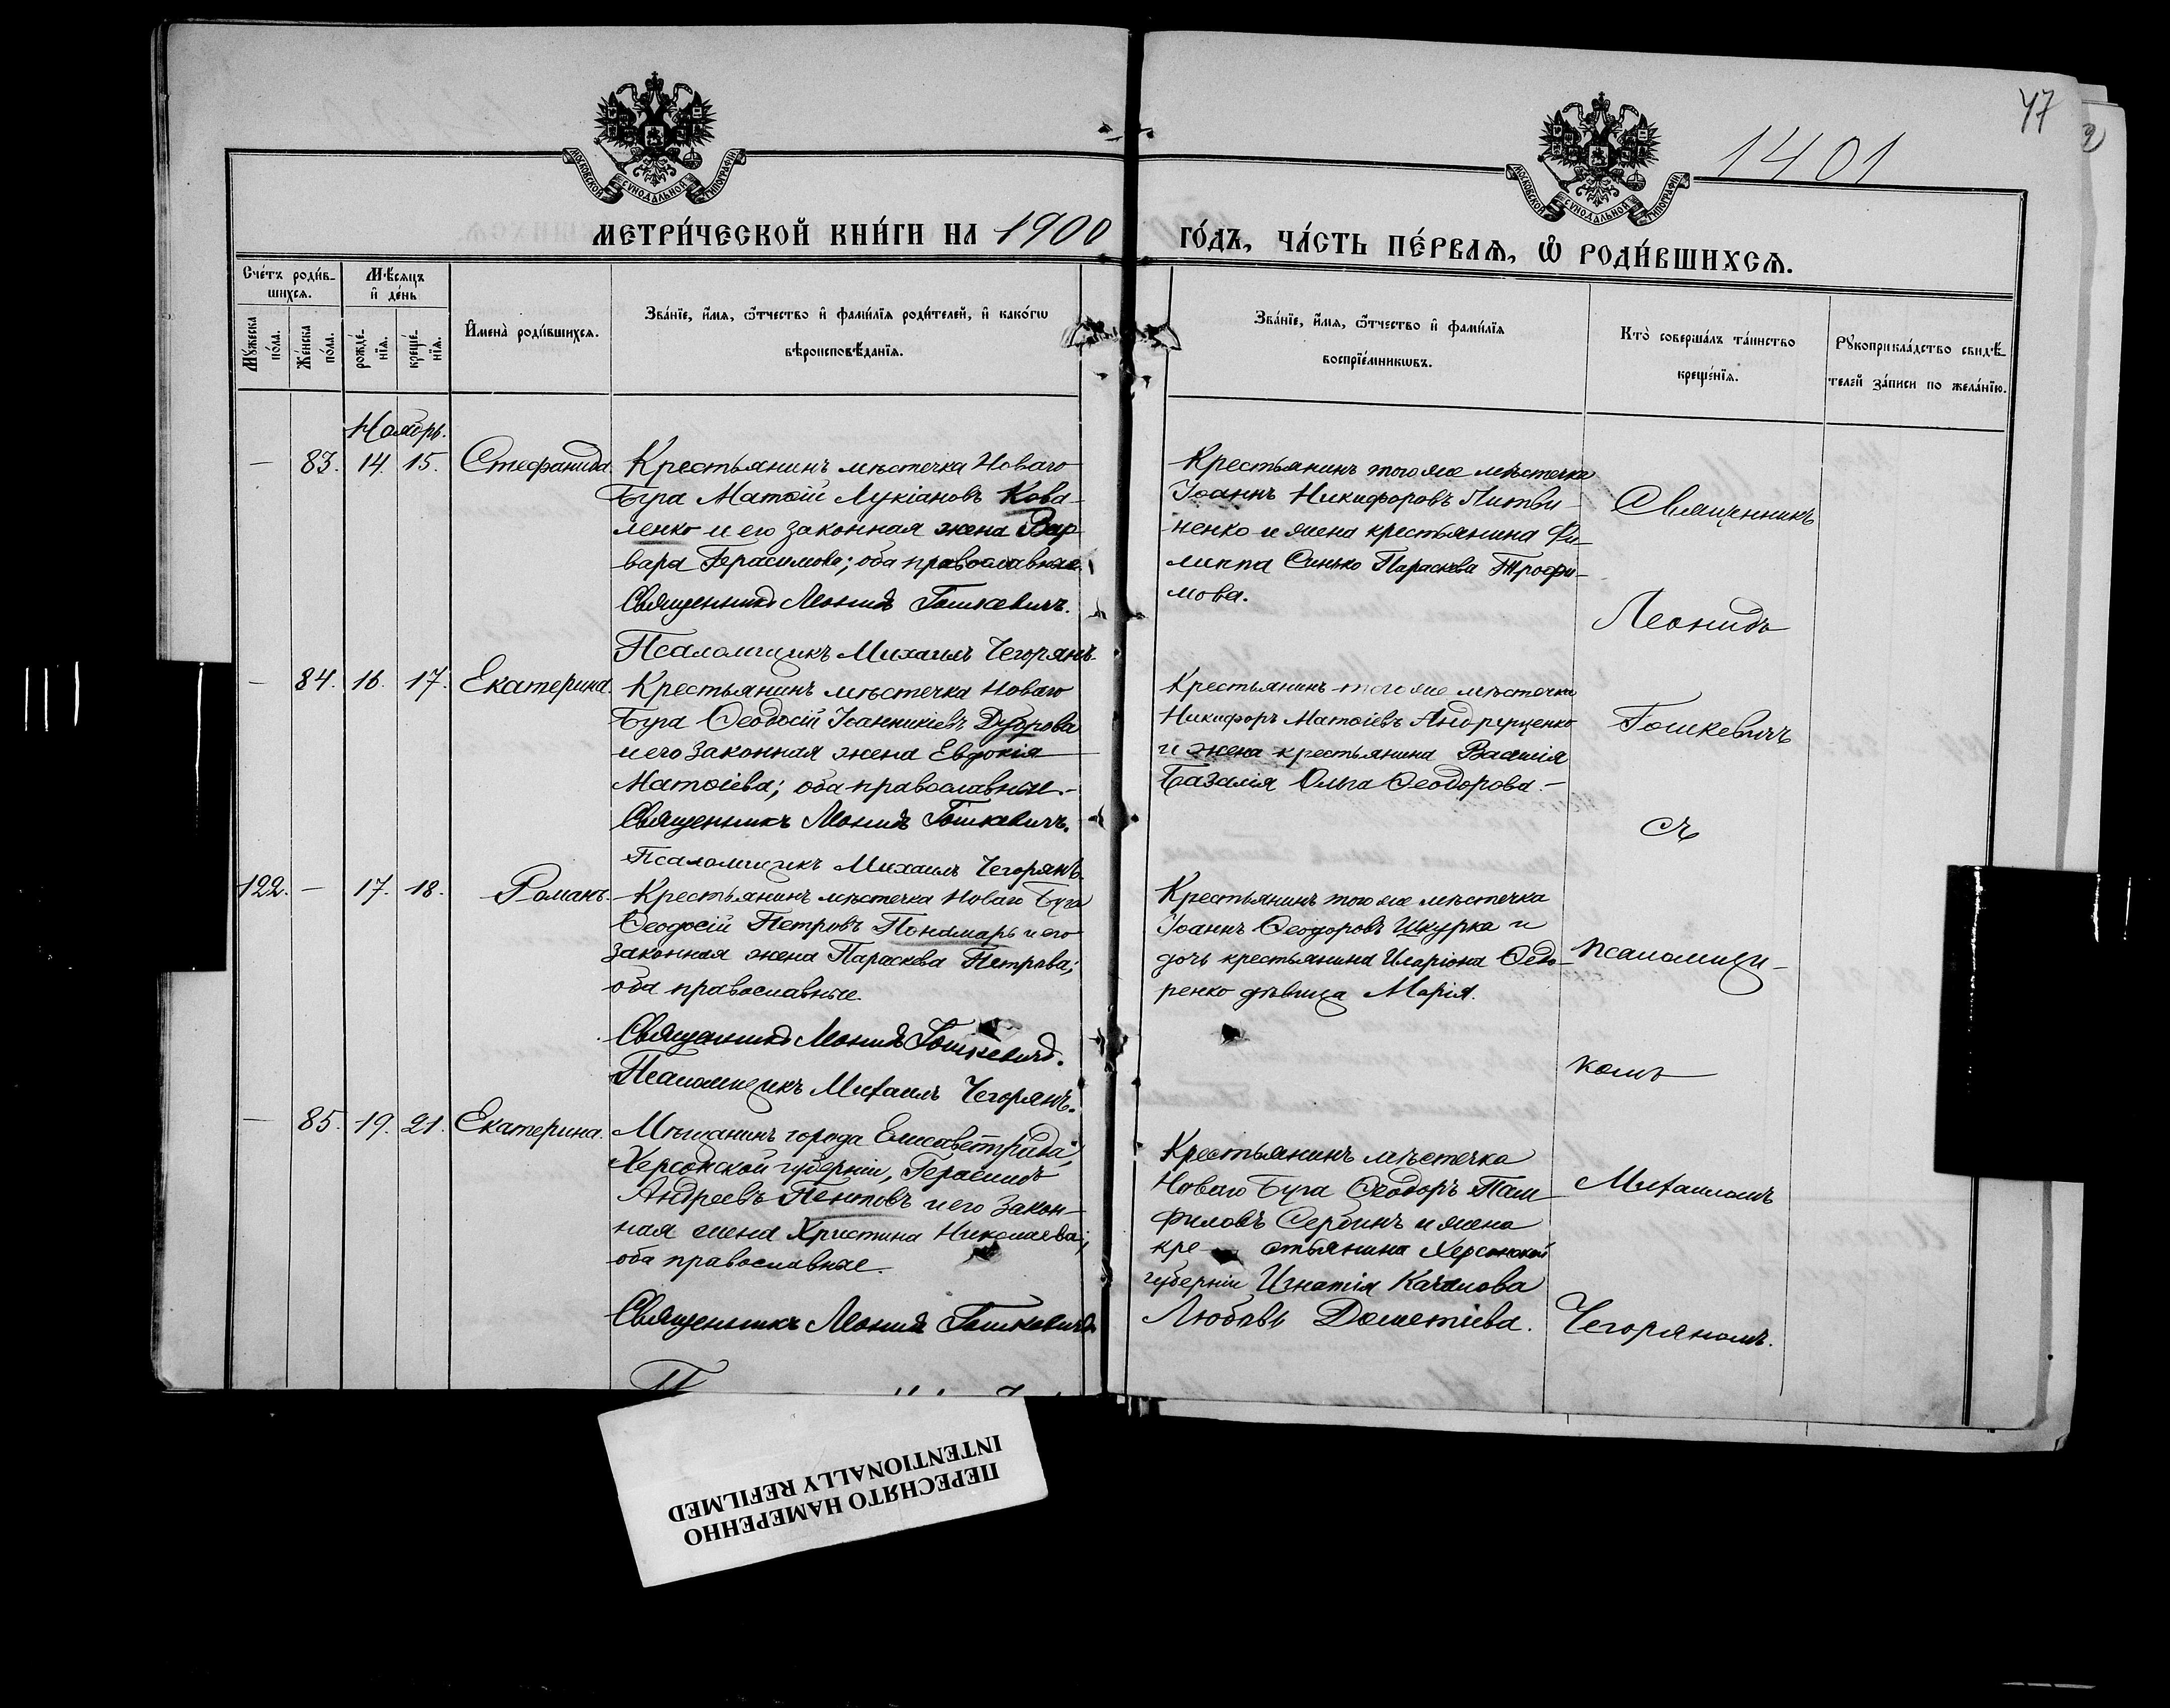 47
1401
МОСКОВСКОЙ СѴНОДАЛЬНОЙ ТИПОГРАФІИ
МОСКОВСКОЙ СѴНОДАЛЬНОЙ ТИПОГРАФІИ
МЕТРИ́ЧЕСКОЙ КНИ́ГИ НА 1900 ГО́ДЪ, ЧА́СТЬ ПЕ́РВАѦ, Ѿ РОДИ́ВШИХСѦ.
Сче́тъ роди́в-
шихсѧ.
Мѣ́сяцъ
и҆ де́нь
Мꙋ́жеска
по́ла.
Же́нска
по́ла.
рожде́-
нїѧ.
креще́-
нїѧ.
И҆мена̀ роди́вшихсѧ.
Зва́нїе, и҆́мѧ, ѻ҆́тчество и҆ фами́лїѧ роди́телей, и҆ како́гѡ
вѣроисповѣ́данїѧ.
Зва́нїе, и҆́мѧ, ѻ҆́тчество и҆ фами́лїѧ
воспрїе́мникѡвъ.
Кто̀ соверша́лъ та́инство
креще́нїѧ.
Рꙋкоприкла́дство свидѣ́-
телей за́писи по жела́нїю.
Ноябрь.
— 83. 14. 15. Стефанида.
Крестьянинъ мѣстечка Новаго
Буга Матѳій Лукіановъ Кова-
ленко и его законная жена Вар-
вара Герасимова; оба православные.
Священникъ Леонидъ Гошкевичъ.
Псаломщикъ Михаилъ Чегорянъ.
Крестьянинъ того же мѣстечка
Іоаннъ Никифоровъ Литви-
ненко и жена крестьянина Фи-
липпа Синько Параскева Трофи-
мова.
— 84. 16. 17. Екатерина.
Крестьянинъ мѣстечка Новаго
Буга Ѳеодосій Іоанникіевъ Дуброва
и его законная жена Евдокія
Матѳіева; оба православные.
Священникъ Леонидъ Гошкевичъ.
Псаломщикъ Михаилъ Чегорянъ.
Крестьянинъ того же мѣстечка
Никифоръ Матѳіевъ
и жена крестьянина Василія
Базалія Ольга Ѳеодорова —
122. — 17. 18. Романъ.
Крестьянинъ мѣстечка Новаго Буга
Ѳеодосій Петровъ Пономарь и его
законная жена Параскева Петрова;
оба православные.
Священникъ Леонидъ Гошкевичъ.
Псаломщикъ Михаилъ Чегорянъ.
Крестьянинъ того же мѣстечка
Іоаннъ Ѳеодоровъ Шкурка и
дочь крестьянина Иларіона Ѳедо-
ренко дѣвица Марія.
— 85. 19. 21. Екатерина.
Мѣщанинъ города Елисаветграда,
Херсонской губерніи, Герасимъ
Андреевъ и его закон-
ная жена Христина Николаева;
оба православные.
Священникъ Леонидъ Гошкевичъ
Крестьянинъ мѣстечка
Новаго Буга Ѳеодоръ Пам-
филовъ Сербинъ и жена
кре- стьянина Херсонской
губерніи Игнатія Качалова
Любовь Дометіева.
Священникъ
Леонидъ
Гошкевичъ
съ
псаломщи-
комъ
Михаиломъ
Чегоряномъ.
ПЕРЕСНЯТО НАМЕРЕННО
INTENTIONALLY REFILMED